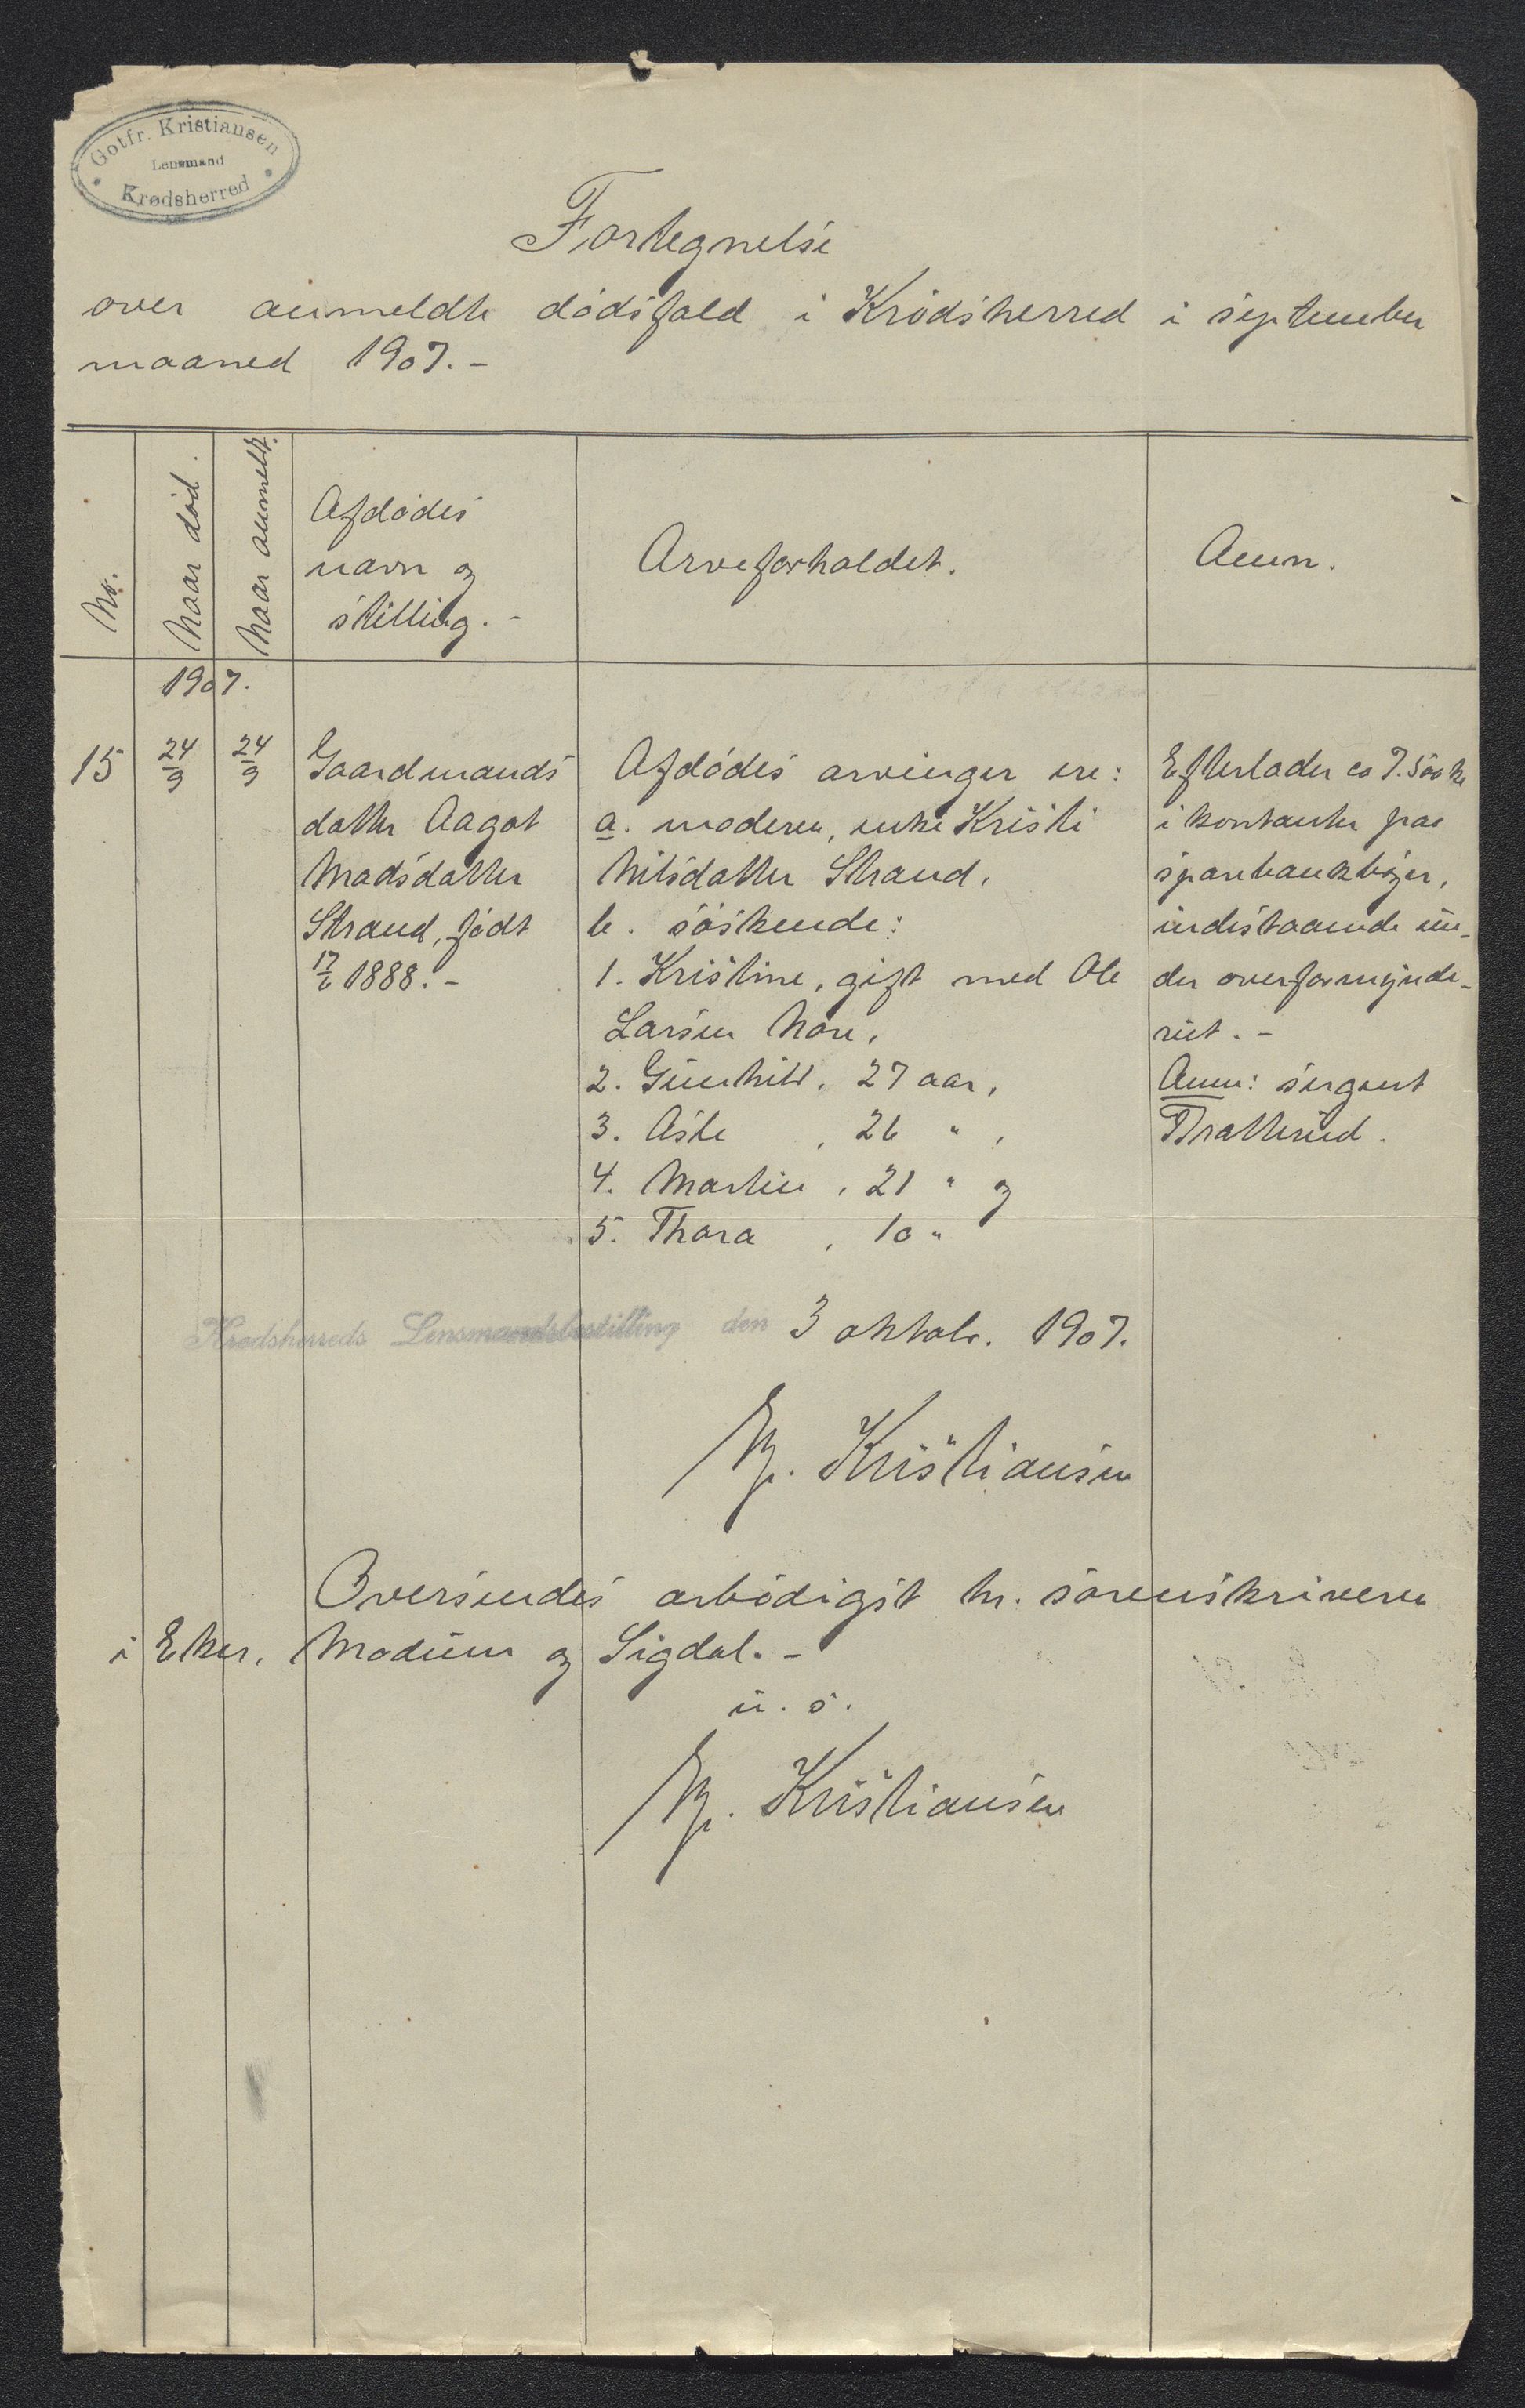 Gotfr. Kristiansen
Lensmand
Krødsherred
Fortegnelse
over anmeldte dødsfald i Krødsherred i september
maaned 1907.-
No.
Naar død.
Naar anmeldt.
Afdødes
navn og
stilling.-
Arveforholdet.
Anm.
1907.
15
24/9
24/9
Gaardmands
datter Aagot
Madsdatter
Strand, født
17/6 1888.-
Afdødes arvinger ere:
a. moderen, enke Kristi
Nilsdatter Strand,
b. søskende:
1. Kristine, gift med Ole
Larsen More,
2. Gunhild, 27 aar,
3. Asle, 26 " ,
4. Martin, 21 " og
5. Thora, 10 "
Efterlader ca 7.500 kr
i kontanter paa
sparebankbøger,
indestaaende un-
der overformynde-
riet.-
Anm: sergent
Bratterud.
Krødsherreds Lensmandsbestilling den 3 oktobr. 1907.
Kristiansen
Oversendes ærbødigst hr. sorenskriveren
i Eker, Modum og Sigdal.-
u. s.
Kristiansen